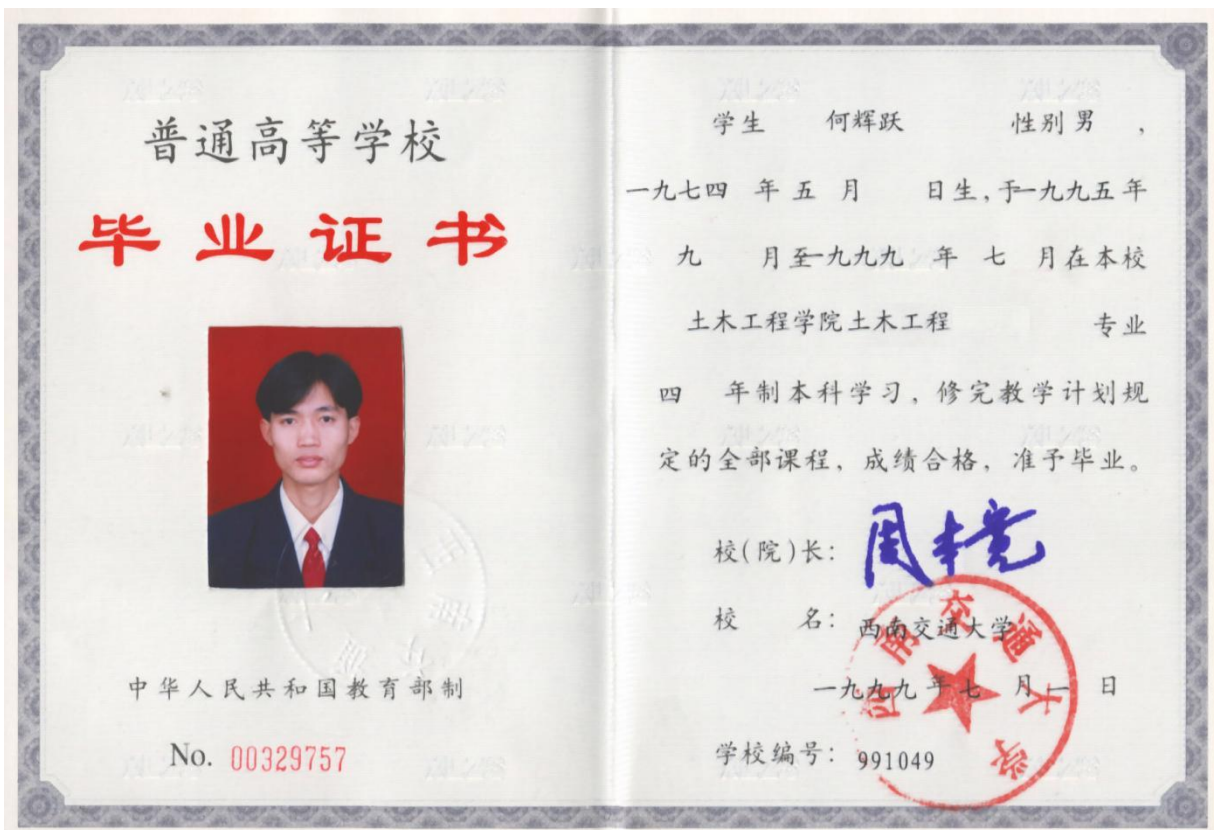 普通高等学校
毕业证书
中华人民共和国教育部制
No. 00329757
学生 何辉跃 性别 男 ,
一九七四 年 五 月 日生,于一九九五年
九 月至一九九九 年 七 月在本校
土木工程学院土木工程 专业
四 年制本科学习,修完教学计划规
定的全部课程,成绩合格,准予毕业。
校(院)长:
校 名: 西南交通大学
一九九九 年 七 月 一 日
学校编号: 991049
西南交通大学